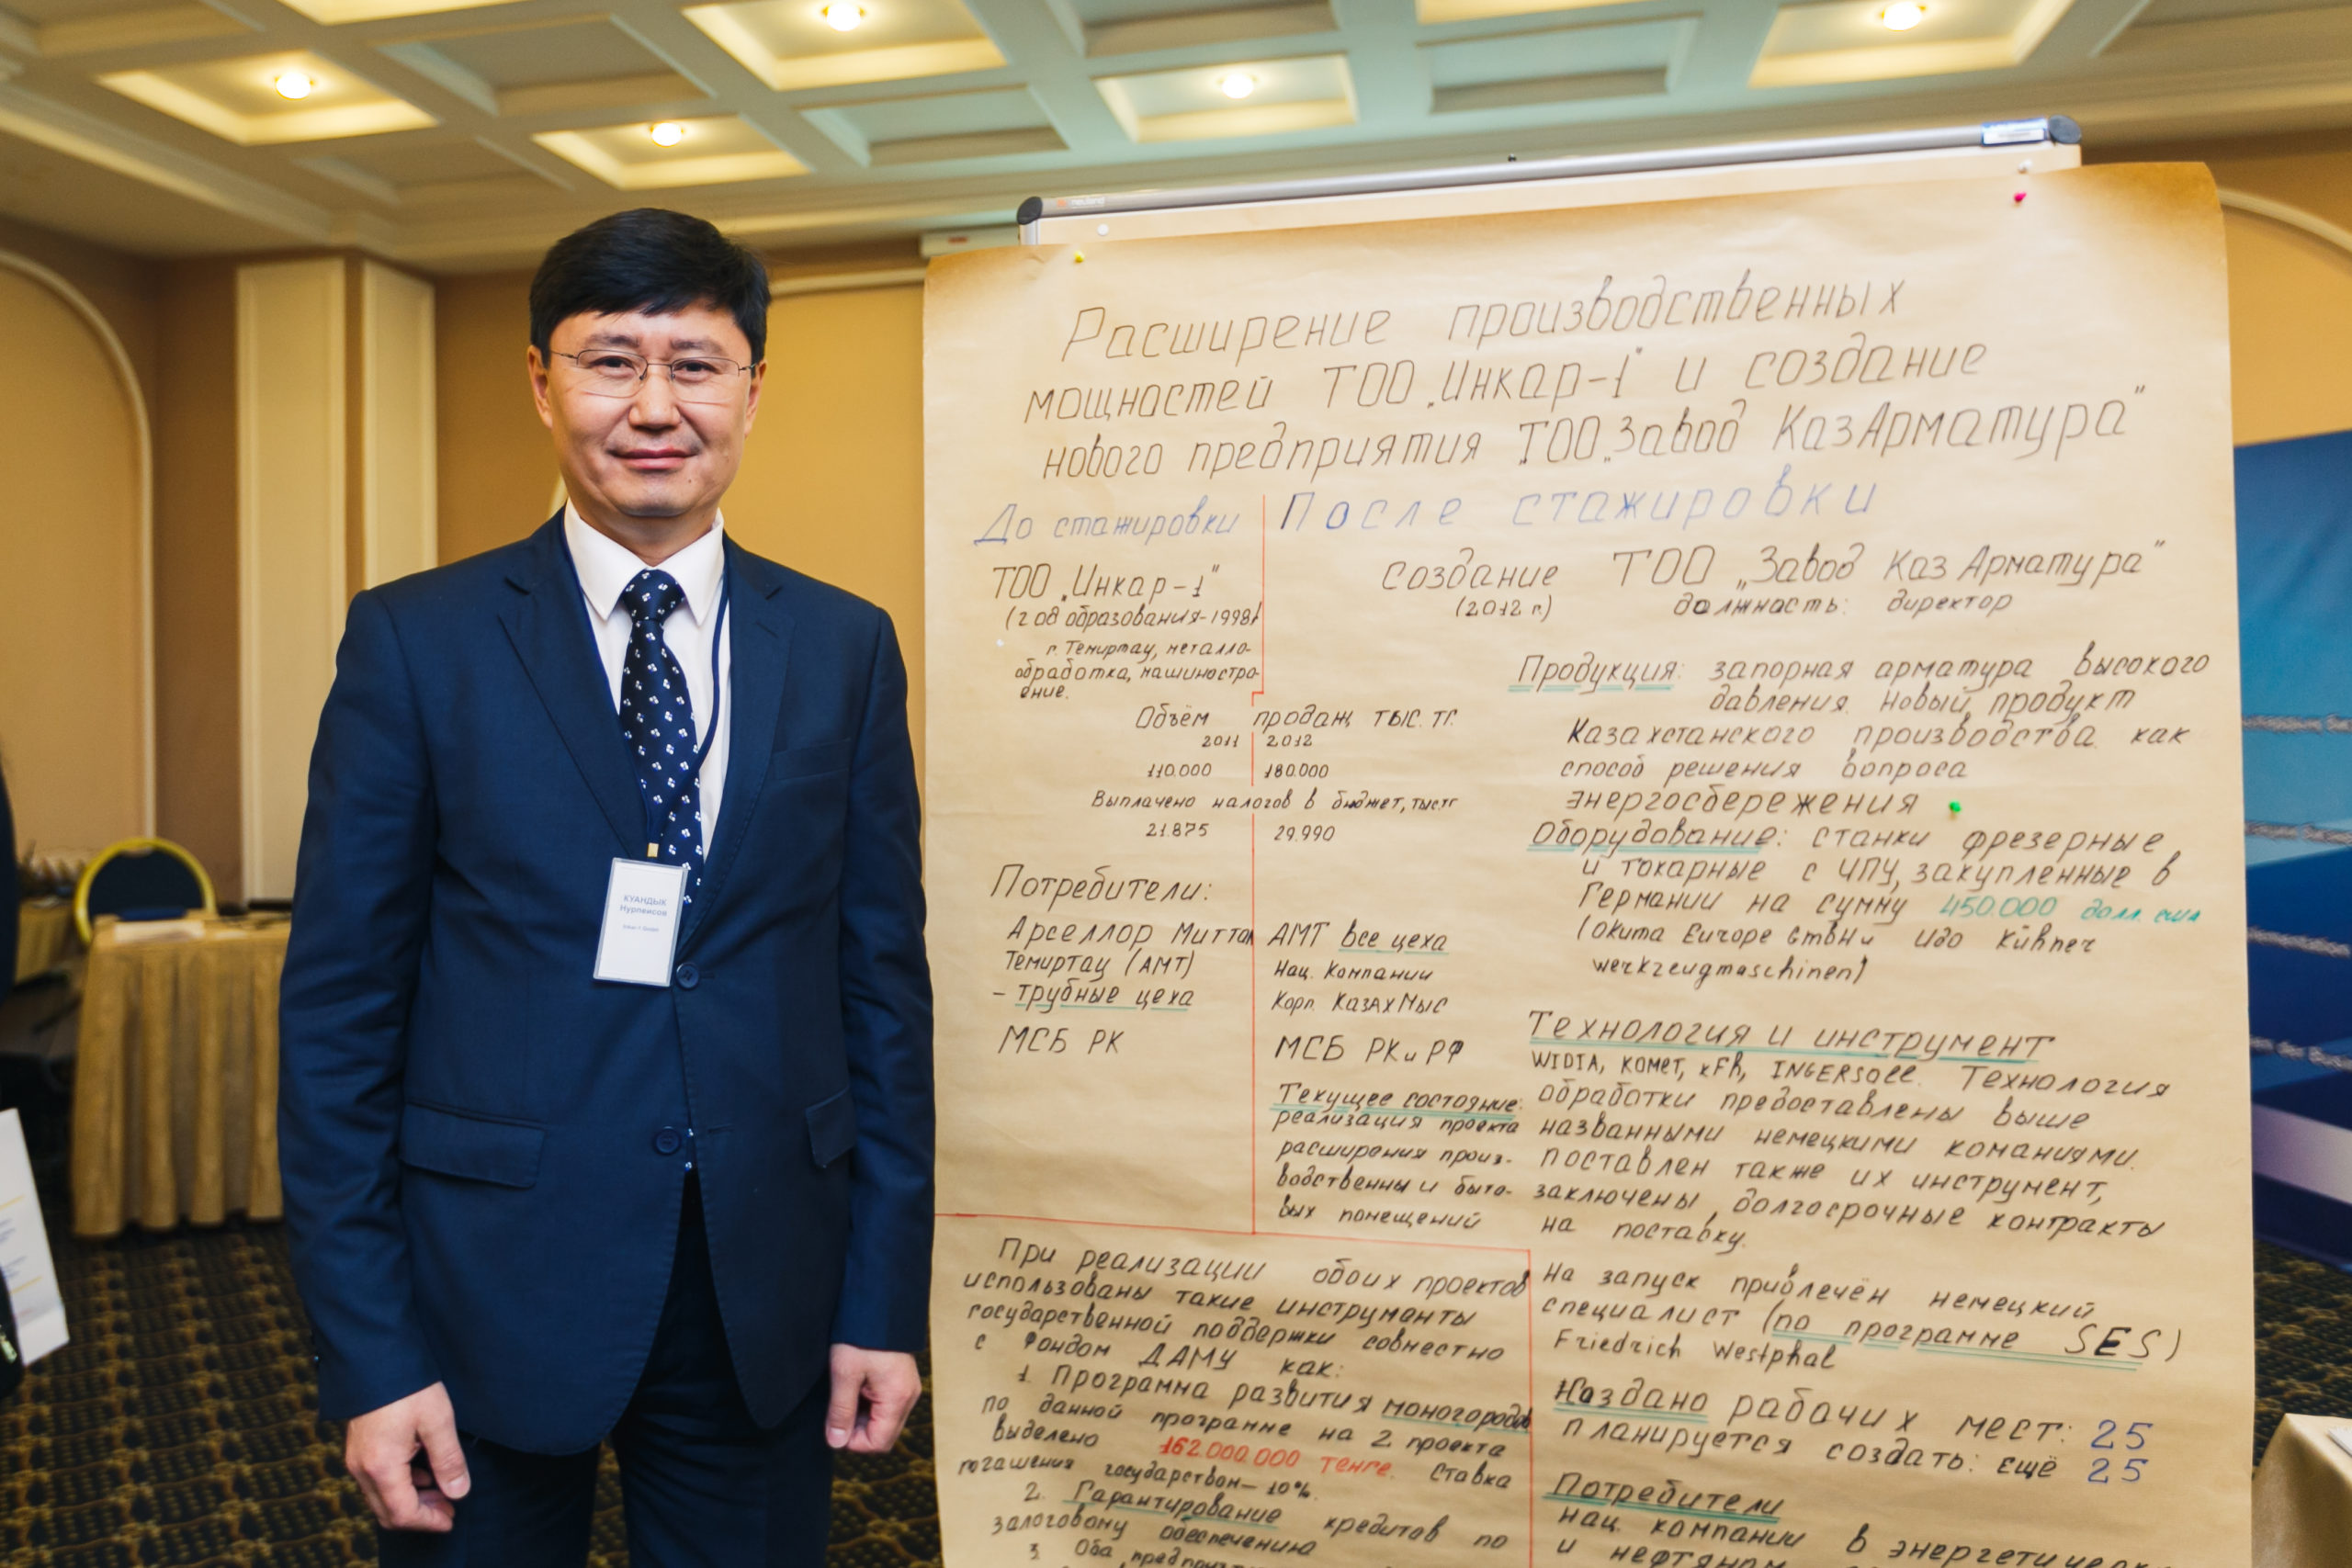 neuland
Расширение производственных
мощностей ТОО „Инкар-1" и создание
нового предприятия ТОО „Завод КазАрматура"
До стажировки
После стажировки
ТОО „Инкар-1"
(год образования-1998)
г. Темиртау, металло-
обработка, машиностро-
ение.
Создание ТОО „Завод КазАрматура"
(2012 г.) должность: директор
Объём продаж тыс. тг.
2011 2012
110.000 180.000
Выплачено налогов в бюджет, тыс тг
21.875 29.990
Потребители:
Арселлор Миттал
Темиртау (АМТ)
- трубные цеха
МСБ РК
АМТ все цеха
Нац. Компании
Корп. КазахМыс
МСБ РК и РФ
Текущее состояние:
реализация проекта
расширения произ-
водственны и быто-
вых помещений
Продукция: запорная арматура высокого
давления. Новый продукт
Казахстанского производства как
способ решения вопроса
энергосбережения
Оборудование: станки фрезерные
и токарные с ЧПУ, закупленные в
Германии на сумму 450.000 долл. сша
(Okuma Europe GmbH и Udo Kühner
werkzeugmaschinen)
Технология и инструмент
WIDIA, KOMET, xFh, INGERSOLL. Технология
обработки предоставлены выше
названными немецкими команиями.
поставлен также их инструмент,
заключены долгосрочные контракты
на поставку.
На запуск привлечён немецкий
специалист (по программе SES)
Friedrich Westphal
Создано рабочих мест: 25
планируется создать: ещё 25
Потребители
нац. компании в
и
При реализации обоих проектов
использованы такие инструменты
государственной поддержки совместно
с Фондом ДАМУ как:
1. Программа развития моногородов
по данной программе на 2 проекта
выделено 162.000.000 тенге. Ставка
погашения государством- 10%.
2. Гарантирование кредитов по
залоговому обеспечению
3. Оба
КУАНДЫК
Нурпеисов